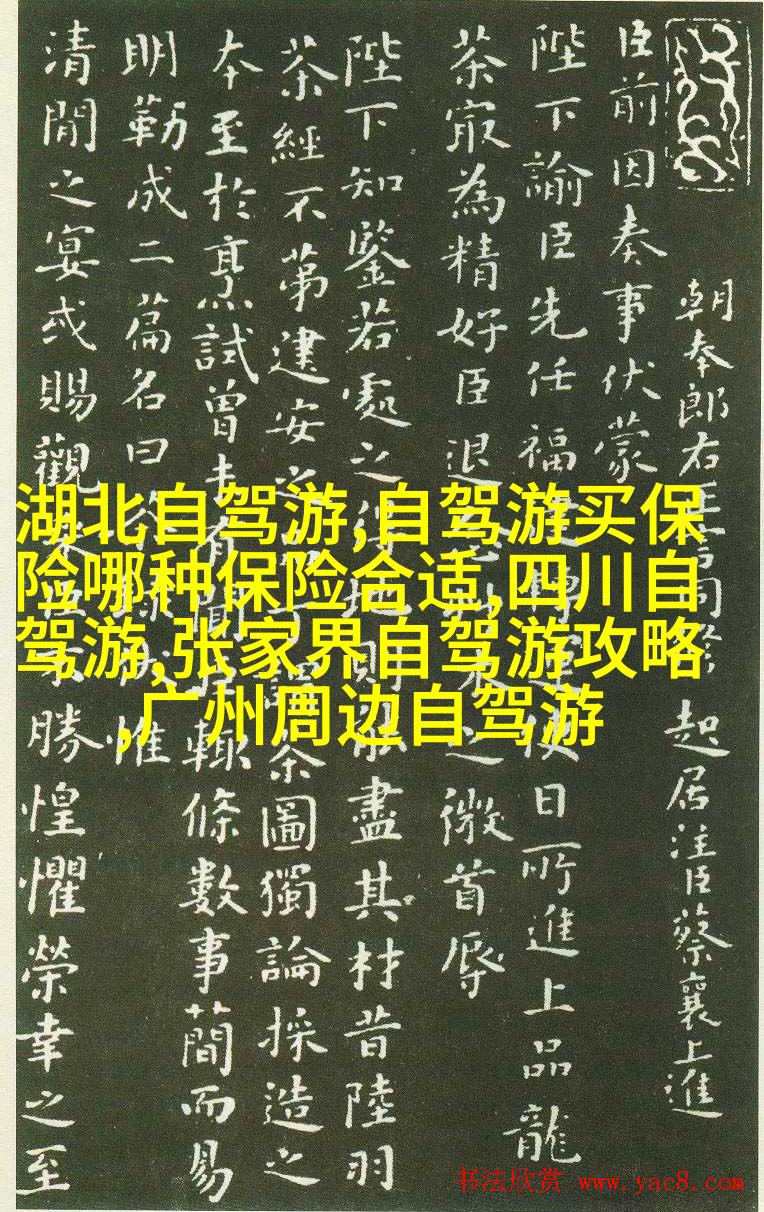 朝奉郎右正言同脩起居注臣蔡襄上進
臣前因奏事伏蒙
陛下諭臣先任福建轉運使日所進上品龍
茶㝡為精好臣退念草木之微首辱
陛下知鑒若處之得地則能盡其材昔陸羽
茶經不第建安之品丁謂茶圖獨論採造之
本至於烹試曾未有聞臣輒條數事簡而易
明勒成二篇名曰茶錄伏惟
清閒之宴或賜觀采臣不勝惶懼榮幸之至
湖北自驾游,自驾游买保
险哪种保险合适,四川自
驾游,张家界自驾游攻略
,广州周边自驾游
书法欣赏 www.yac8.com